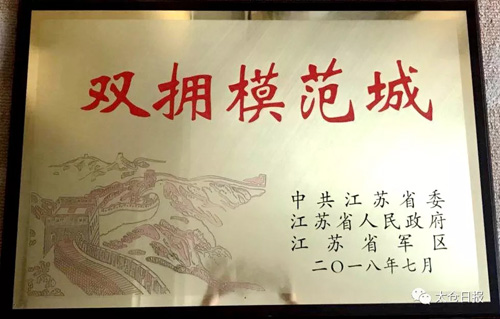 双拥模范城
中共江苏省委
江苏省人民政府
江苏省军区
二〇一八年七月
太仓日报